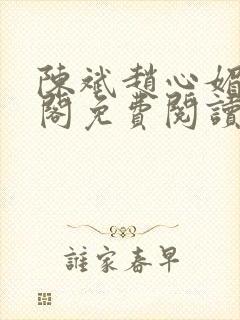 陳斌趙心媚
閣免費閱讀
誰家春早